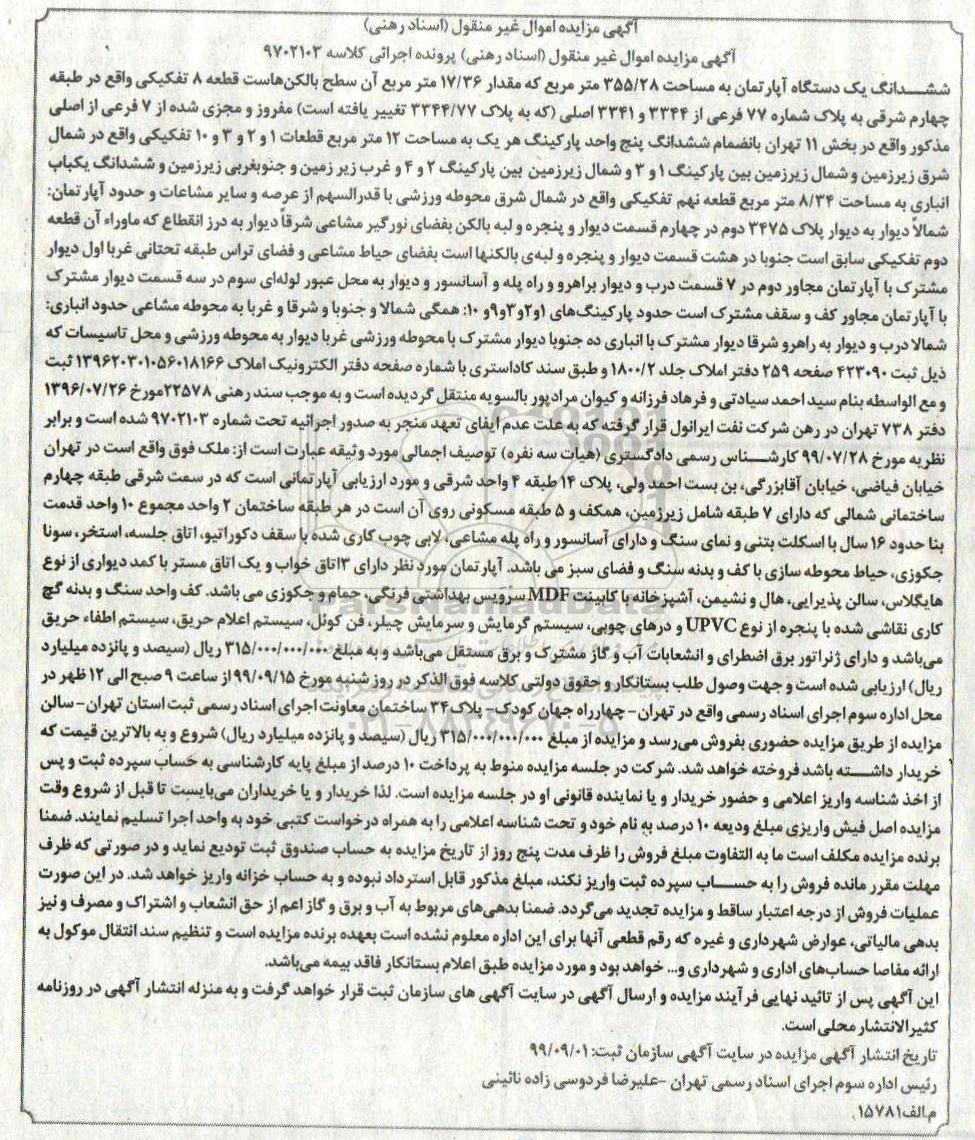 آگهی مزایده اموال غیر منقول (اسناد رهنی)
آگهی مزایده اموال غیر منقول (اسناد رهنی) پرونده اجرائی کلاسه ۹۷۰۲۱۰۳
ششدانگ یک دستگاه آپارتمان به مساحت ۳۵۵/۲۸ متر مربع که مقدار ۱۷/۳۶ متر مربع آن سطح بالکن‌هاست قطعه ۸ تفکیکی واقع در طبقه
چهارم شرقی به پلاک شماره ۷۷ فرعی از ۳۳۴۴ و ۳۳۴۱ اصلی (که به پلاک ۳۳۴۴/۷۷ تغییر یافته است) مفروز و مجزی شده از ۷ فرعی از اصلی
مذکور واقع در بخش ۱۱ تهران بانضمام ششدانگ پنج واحد پارکینگ هر یک به مساحت ۱۲ متر مربع قطعات ۱ و ۲ و ۳ و ۱۰ تفکیکی واقع در شمال
شرق زیرزمین و شمال زیرزمین بین پارکینگ ۱ و ۳ و شمال زیرزمین بین پارکینگ ۲ و ۴ و غرب زیر زمین و جنوبغربی زیرزمین و ششدانگ یکباب
انباری به مساحت ۸/۳۴ متر مربع قطعه نهم تفکیکی واقع در شمال شرق محوطه ورزشی با قدرالسهم از عرصه و سایر مشاعات و حدود آپارتمان:
شمالاً دیوار به دیوار پلاک ۳۴۷۵ دوم در چهارم قسمت دیوار و پنجره و لبه بالکن بفضای نورگیر مشاعی شرقاً دیوار به درز انقطاع که ماوراء آن قطعه
دوم تفکیکی سابق است جنوبا در هشت قسمت دیوار و پنجره و لبه‌ی بالکنها است بفضای حیاط مشاعی و فضای تراس طبقه تحتانی غربا اول دیوار
مشترک با آپارتمان مجاور دوم در ۷ قسمت درب و دیوار براهرو و راه پله و آسانسور و دیوار به محل عبور لوله‌ای سوم در سه قسمت دیوار مشترک
با آپارتمان مجاور کف و سقف مشترک است حدود پارکینگ‌های ۱و۲و۳و۹و ۱۰: همگی شمالا و جنوبا و شرقا و غربا به محوطه مشاعی حدود انباری:
شمالا درب و دیوار به راهرو شرقا دیوار مشترک با انباری ده جنوبا دیوار مشترک با محوطه ورزشی غربا دیوار به محوطه ورزشی و محل تاسیسات که
ذیل ثبت ۴۲۳۰۹۰ صفحه ۲۵۹ دفتر املاک جلد ۱۸۰۰/۲ و طبق سند کاداستری با شماره صفحه دفتر الکترونیک املاک ۱۳۹۶۲۰۳۰۱۰۵۶۰۱۸۱۶۶ ثبت
و مع الواسطه بنام سید احمد سیادتی و فرهاد فرزانه و کیوان مرادپور بالسویه منتقل گردیده است و به موجب سند رهنی ۲۲۵۷۸مورخ ۱۳۹۶/۰۷/۲۶
دفتر ۷۳۸ تهران در رهن شرکت نفت ایرانول قرار گرفته که به علت عدم ایفای تعهد منجر به صدور اجرائیه تحت شماره ۹۷۰۲۱۰۳ شده است و برابر
نظریه مورخ ۹۹/۰۷/۲۸ کارشناس رسمی دادگستری (هیات سه نفره) توصیف اجمالی مورد وثیقه عبارت است از: ملک فوق واقع است در تهران
خیابان فیاضی، خیابان آقابزرگی، بن بست احمد ولی، پلاک ۱۴ طبقه ۴ واحد شرقی و مورد ارزیابی آپارتمانی است که در سمت شرقی طبقه چهارم
ساختمانی شمالی که دارای ۷ طبقه شامل زیرزمین، همکف و ۵ طبقه مسکونی روی آن است در هر طبقه ساختمان ۲ واحد مجموع ۱۰ واحد قدمت
بنا حدود ۱۶ سال با اسکلت بتنی و نمای سنگ و دارای آسانسور و راه پله مشاعی، لابی چوب کاری شده با سقف دکوراتیو، اتاق جلسه، استخر، سونا
جکوزی، حیاط محوطه سازی با کف و بدنه سنگ و فضای سبز می باشد. آپارتمان مورد نظر دارای ۳اتاق خواب و یک اتاق مستر با کمد دیواری از نوع
هایگلاس، سالن پذیرایی، هال و نشیمن، آشپزخانه با کابینت MDF سرویس بهداشتی فرنگی، حمام و جکوزی می باشد. کف واحد سنگ و بدنه گچ
کاری نقاشی شده با پنجره از نوع UPVC و درهای چوبی، سیستم گرمایش و سرمایش چیلر، فن کوئل، سیستم اعلام حریق، سیستم اطفاء حریق
می‌باشد و دارای ژنراتور برق اضطرای و انشعابات آب و گاز مشترک و برق مستقل می‌باشد و به مبلغ ۳۱۵/۰۰۰/۰۰۰/۰۰۰ ریال (سیصد و پانزده میلیارد
ریال) ارزیابی شده است و جهت وصول طلب بستانکار و حقوق دولتی کلاسه فوق الذکر در روز شنبه مورخ ۹۹/۰۹/۱۵از ساعت ۹ صبح الی ۱۲ ظهر در
محل اداره سوم اجرای اسناد رسمی واقع در تهران- چهارراه جهان کودک- پلاک۳۴ ساختمان معاونت اجرای اسناد رسمی ثبت استان تهران- سالن
مزایده از طریق مزایده حضوری بفروش می‌رسد و مزایده از مبلغ ۳۱۵/۰۰۰/۰۰۰/۰۰۰ ریال (سیصد و پانزده میلیارد ریال) شروع و به بالاترین قیمت که
خریدار داشته باشد فروخته خواهد شد. شرکت در جلسه مزایده منوط به پرداخت ۱۰ درصد از مبلغ پایه کارشناسی به حساب سپرده ثبت و پس
از اخذ شناسه واریز اعلامی و حضور خریدار و یا نماینده قانونی او در جلسه مزایده است. لذا خریدار و یا خریداران می‌بایست تا قبل از شروع وقت
مزایده اصل فیش واریزی مبلغ ودیعه ۱۰ درصد به نام خود و تحت شناسه اعلامی را به همراه درخواست کتبی خود به واحد اجرا تسلیم نمایند. ضمنا
برنده مزایده مکلف است ما به التفاوت مبلغ فروش را ظرف مدت پنج روز از تاریخ مزایده به حساب صندوق ثبت تودیع نماید و در صورتی که ظرف
مهلت مقرر مانده فروش را به حساب سپرده ثبت واریز نکند، مبلغ مذکور قابل استرداد نبوده و به حساب خزانه واریز خواهد شد. در این صورت
عملیات فروش از درجه اعتبار ساقط و مزایده تجدید می‌گردد. ضمنا بدهی‌های مربوط به آب و برق و گاز اعم از حق انشعاب و اشتراک و مصرف و نیز
بدهی مالیاتی، عوارض شهرداری و غیره که رقم قطعی آنها برای این اداره معلوم نشده است بعهده برنده مزایده است و تنظیم سند انتقال موکول به
ارائه مفاصا حساب‌های اداری و شهرداری و... خواهد بود و مورد مزایده طبق اعلام بستانکار فاقد بیمه می‌باشد.
این آگهی پس از تائید نهایی فرآیند مزایده و ارسال آگهی در سایت آگهی های سازمان ثبت قرار خواهد گرفت و به منزله انتشار آگهی در روزنامه
کثیرالانتشار محلی است.
تاریخ انتشار آگهی مزایده در سایت آگهی سازمان ثبت: ۹۹/۰۹/۰۱
رئیس اداره سوم اجرای اسناد رسمی تهران -علیرضا فردوسی زاده نائینی
م.الف۱۵۷۸۱